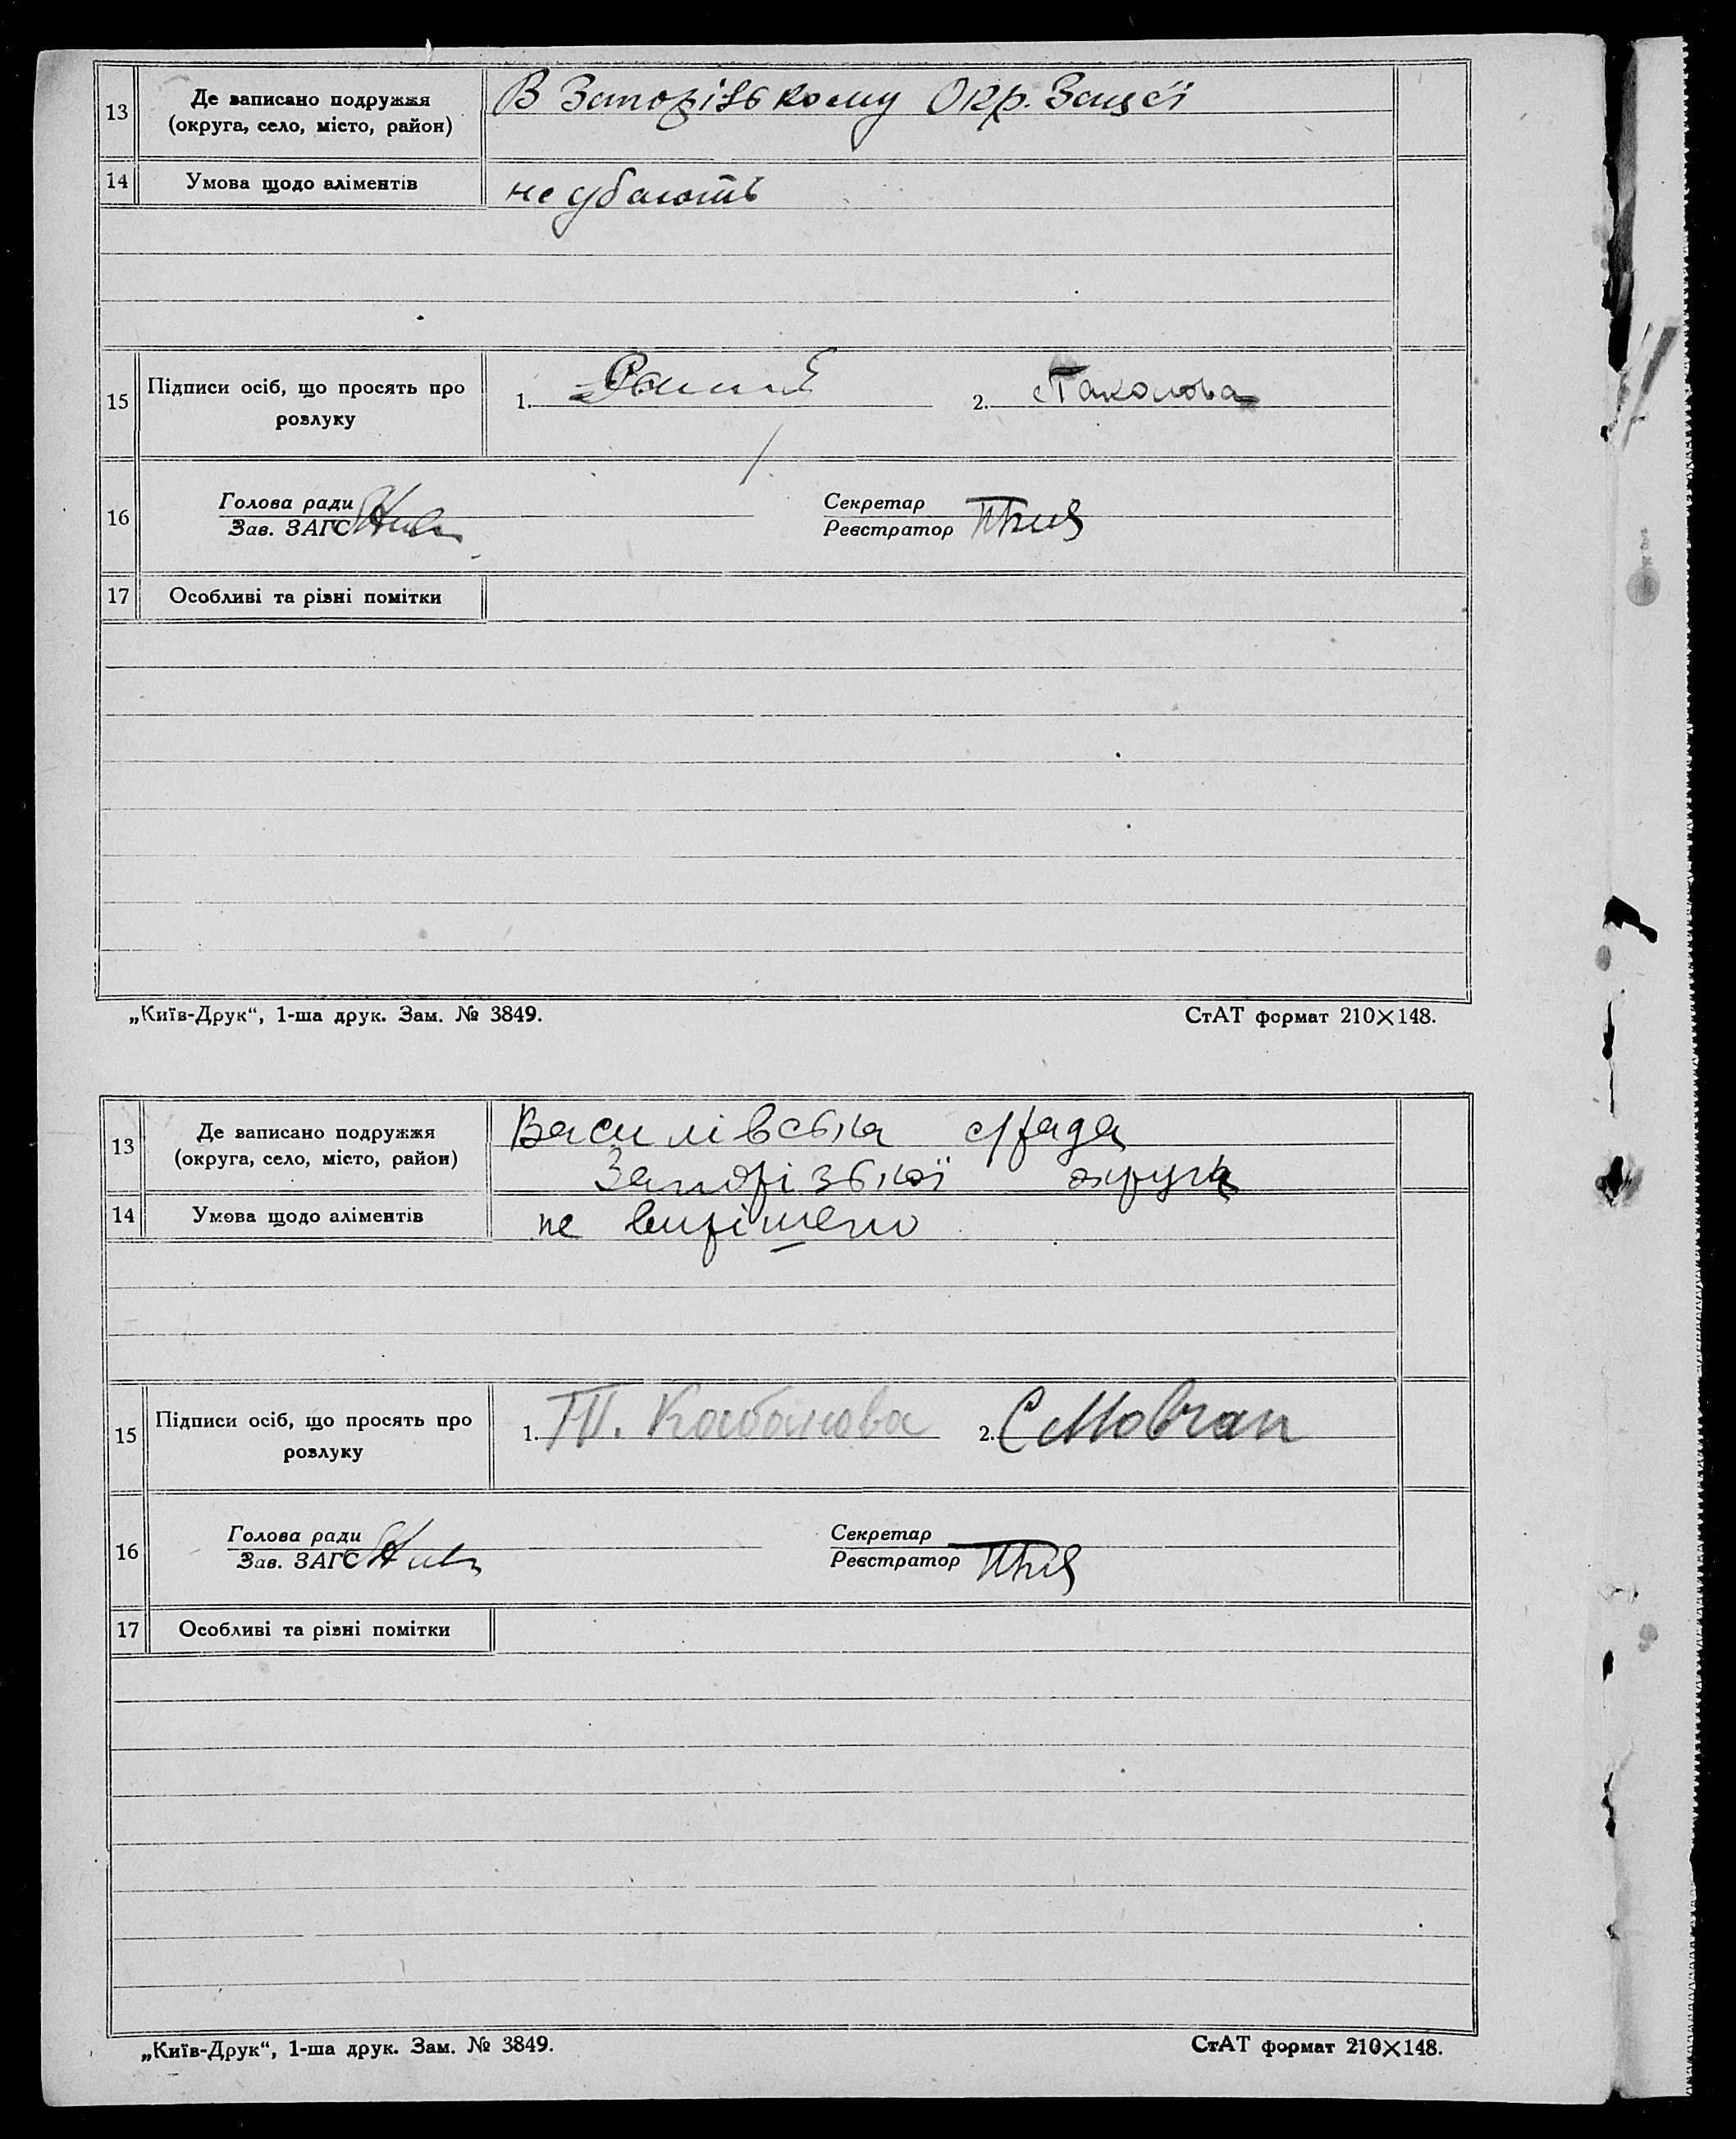 13 Де записано подружжя В Запорізькому Окр. Загсі
(округа, село, місто, район)
14 Умова щодо аліментів не дбають
15 Підписи осіб, що просять про розлуку 1. 2.
16 Голова ради Секретар
Зав. ЗАГС Реєстратор
17 Особливі та різні помітки
„Київ-Друк“, 1-ша друк. Зам. № 3849. СтАТ формат 210×148.
13 Де записано подружжя Василівська с/рада
(округа, село, місто, район) Запорізької округи
14 Умова щодо аліментів не вирішено
15 Підписи осіб, що просять про розлуку 1. Кабанова 2. СМовчан
16 Голова ради Секретар
Зав. ЗАГС Реєстратор
17 Особливі та різні помітки
„Київ-Друк“, 1-ша друк. Зам. № 3849. СтАТ формат 210×148.